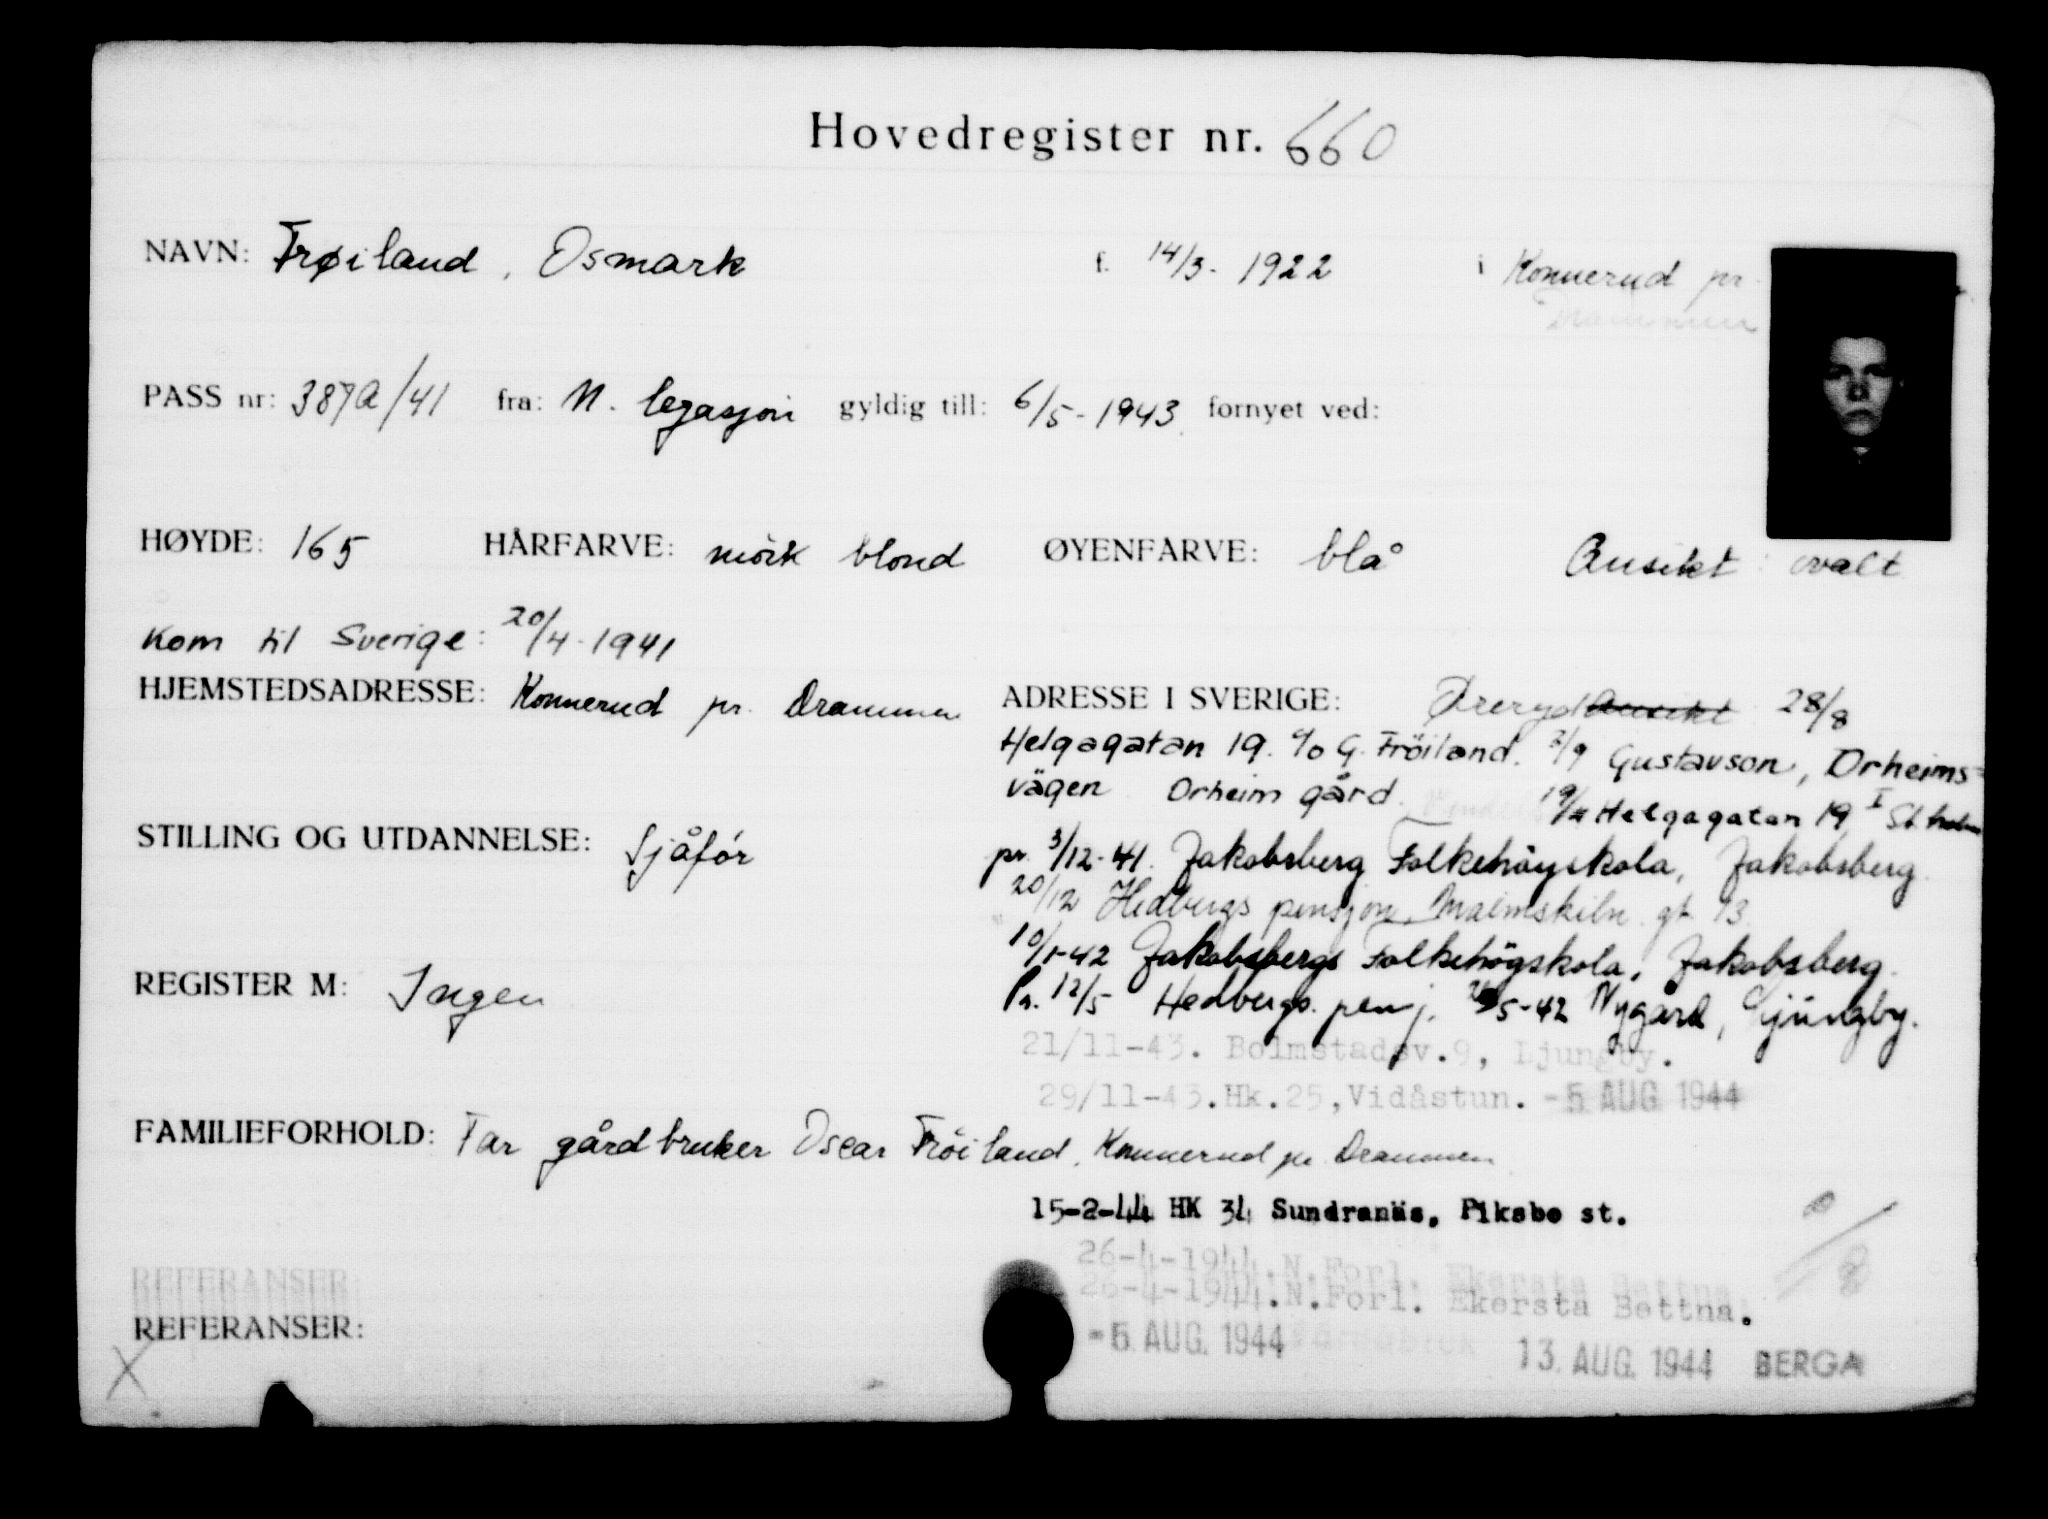 Hovedregister nr. 660
NAVN: Frøiland, Osmark f. 14/3- 1922 i Konnerud pr.
Drammen
PASS nr: 387a/41 fra: N. legasjon gyldig till: 6/5-1943. fornyet ved:
HØYDE: 165 HÅRFARVE: mörk blond ØYENFARVE: blå Ansikt: ovalt
Kom til Sverige: 20/4-1941
HJEMSTEDSADRESSE: Konnerud pr. Drammen
ADRESSE I SVERIGE: Øreryd Ansikt 28/8
Helgagatan 19. c/o G. Fröiland. 2/9 Gustavson, Orheims-
vägen Orheim gård. Helgagatan 19 I St.holm
STILLING OG UTDANNELSE: Sjåfór
pr. 3/12-41. Jakobsberg Folkehöyskola, Jakobsberg.
20/12 Hedbergs pensjon, Malmskiln. gt. 13.
10/1-42 Jakobsbergs Folkehögskola, Jakobsberg.
REGISTER M: Ingen
Pr. 12/5 Hedbergs. pensj. 5-42 Nygård, Ljungby.
21/11-43. Bolmstadsv.9, Ljungby.
29/11-43.Hk.25,Vidåstun. -5 AUG 1944
FAMILIEFORHOLD: Far gårdbruker Oscar Fröiland, Konnerud pr. Drammen
15-2-44 HK 34 Sundranäs, Fiksbo st.
26-4-1944.N.Forl. Ekersta Bettna.
26-4-1944.N.Forl. Ekersta Bettna.
REFERANSER:
REFERANSER:
-5. AUG. 1944 13. AUG. 1944 BERGA
X